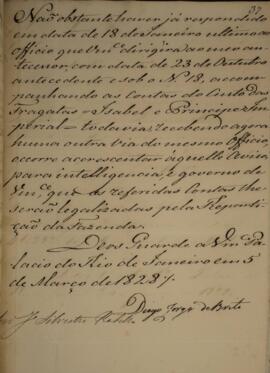 37
Não obstante haver já respondido
em data de 18 de Janeiro ultimo ao
officio que Vm.ce dirigira ao meu an-
tecessor, com data de 23 de Outubro
antecedente e sob o N.º 18, accom-
panhando as Contas do Custo das
Fragatas = Isabel e Principe Im-
perial = todavia, recebendo agora
huma outra via do mesmo Officio,
occorre accrescentar áquelle Aviso
para intelligencia, e governo de
Vm.ce, que as referidas Contas lhe
serão legalizadas pela Reparti-
ção da Fazenda.
Deos Guarde a Vm.ce Pa-
lacio do Rio de Janeiro em 5
de Março de 1828.
Diogo Jorge de Brito
Silvestre Rebello